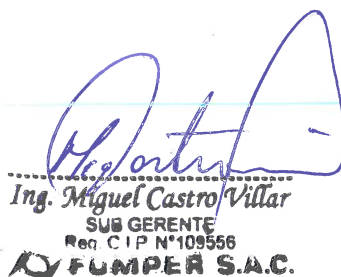 Ing. Miguel Castro Villar
SUB GERENTE
Reg. C I P N°109556
FUMPER S.A.C.